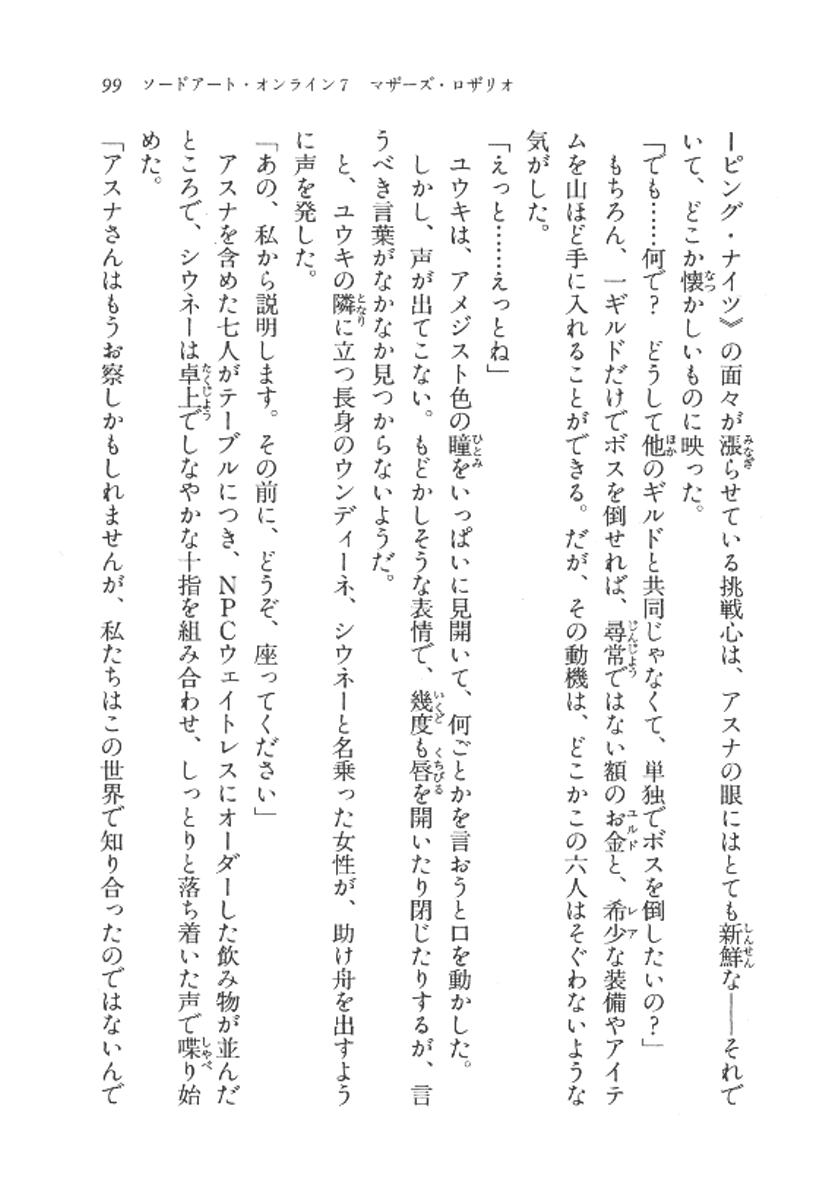 99　ソードアート・オンライン7　マザーズ・ロザリオ
ーピング・ナイツ》の面々が漲らせている挑戦心は、アスナの眼にはとても新鮮な――それで
いて、どこか懐かしいものに映った。
「でも……何で？　どうして他のギルドと共同じゃなくて、単独でボスを倒したいの？」
もちろん、一ギルドだけでボスを倒せれば、尋常ではない額のお金と、希少な装備やアイテ
ムを山ほど手に入れることができる。だが、その動機は、どこかこの六人はそぐわないような
気がした。
「えっと……えっとね」
ユウキは、アメジスト色の瞳をいっぱいに見開いて、何ごとかを言おうと口を動かした。
しかし、声が出てこない。もどかしそうな表情で、幾度も唇を開いたり閉じたりするが、言
うべき言葉がなかなか見つからないようだ。
と、ユウキの隣に立つ長身のウンディーネ、シウネーと名乗った女性が、助け舟を出すよう
に声を発した。
「あの、私から説明します。その前に、どうぞ、座ってください」
アスナを含めた七人がテーブルにつき、NPCウェイトレスにオーダーした飲み物が並んだ
ところで、シウネーは卓上でしなやかな十指を組み合わせ、しっとりと落ち着いた声で喋り始
めた。
「アスナさんはもうお察しかもしれませんが、私たちはこの世界で知り合ったのではないんで